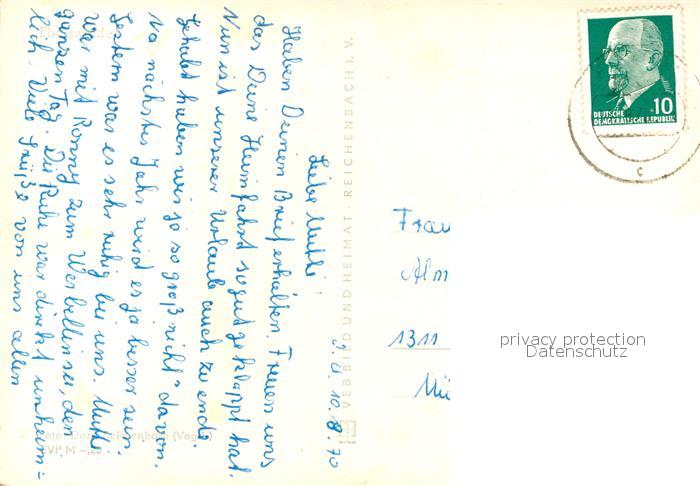 Liebe Mutti!
Haben Deinen Brief erhalten. Freuen uns
das Deine Heimfahrt so gut geklappt hat.
Nun ist unserer Urlaub auch zu ende.
Gehabt haben wir ja so groß nicht davon.
Na nächstes Jahr wird es ja besser sein.
Gestern war es sehr ruhig bei uns. Mutti
war mit Ronny zum Werbellinsee, den
ganzen Tag. Die Ruhe war direkt unheim=
lich. Viele Grüße von uns allen
10.8.70
VEB BILD UND HEIMAT REICHENBACH I. V.
(Vogtl.)
EVP M -,20
DEUTSCHE
DEMOKRATISCHE REPUBLIK
10
c
Frau
Alm
1311
privacy protection
Datenschutz